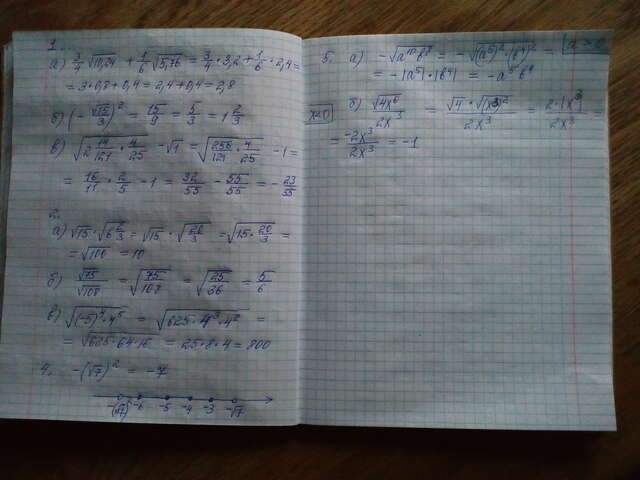 1.
а) 3/4 √10,24 + 1/6 √5,76 = 3/4 · 3,2 + 1/6 · 2,4 =
= 3 · 0,8 + 0,4 = 2,4 + 0,4 = 2,8
б) (- √15/3)² = 15/9 = 5/3 = 1 2/3
в) √(2 14/121 · 4/25) - √1 = √(256/121 · 4/25) - 1 =
= 16/11 · 2/5 - 1 = 32/55 - 55/55 = - 23/55
2.
а) √15 · √(6 2/3) = √15 · √(20/3) = √(15 · 20/3) =
= √100 = 10
б) √75/√108 = √(75/108) = √(25/36) = 5/6
в) √((-5)⁴ · 4⁵) = √(625 · 4³ · 4²) =
= √(625 · 64 · 16) = 25 · 8 · 4 = 800
4. -(√7)² = -7
-(√7)² -6 -5 -4 -3 -√7
5. а) -√(a¹⁰b⁸) = -√((a⁵)² · (b⁴)²) = a >
= -|a⁵| · |b⁴| = -a⁵b⁴
x<0 б) √(4x⁶)/2x³ = √4 · √(x³)²/2x³ = 2·|x³|/2x³ =
= -2x³/2x³ = -1